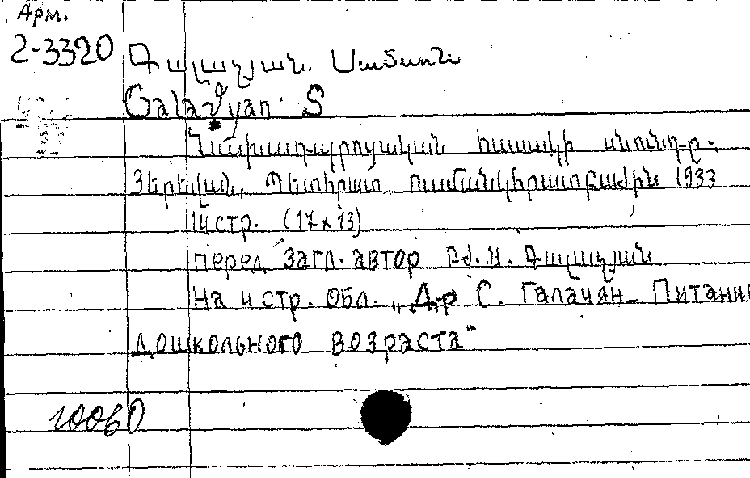 Арм.
2-3320 Գալաչյան Սամսոն
Galačyan S
Նախադպրոցական հասակի սնունդ-ը.
Յերևան, Պետհրատ, 1933
14 стр. (17 x 13)
перед загл. автор Բժ. Ս. Գալաչյան
На 4 стр. обл. „Д-р С. Галачян Питание
дошкольного возраста"
10060